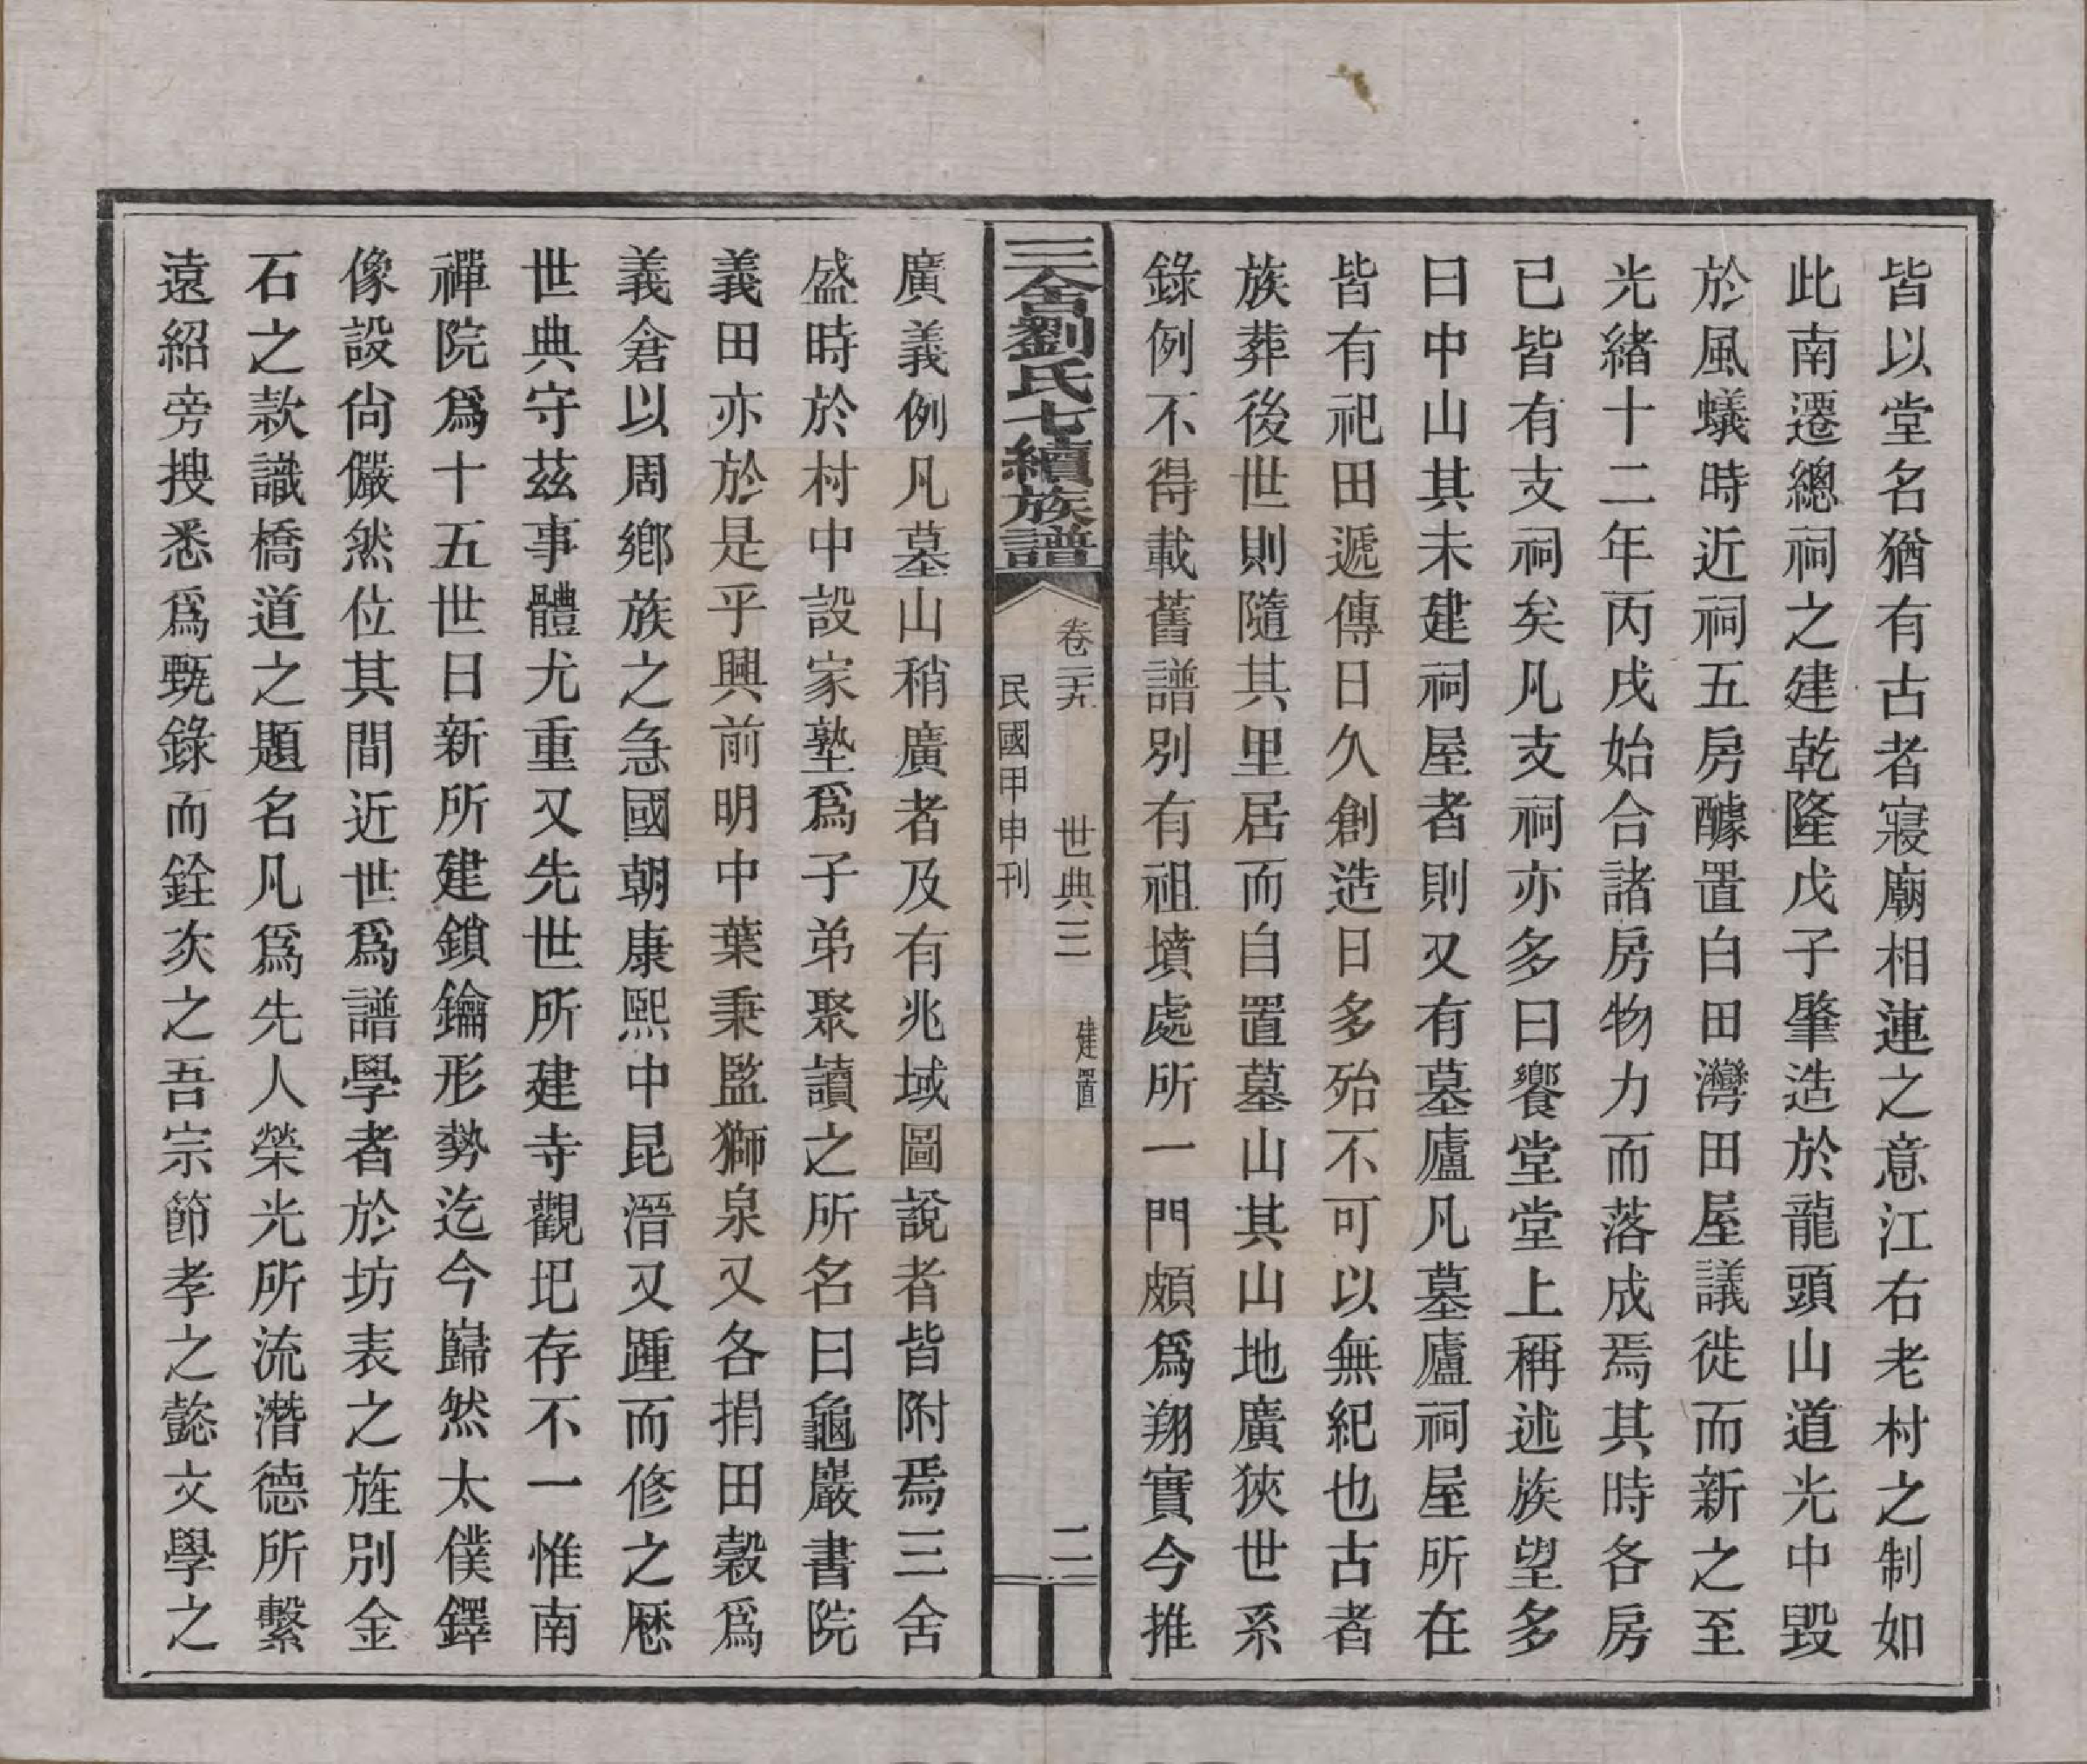 皆以堂名猶有古者寢廟相連之意江右老村之制如
此南遷總祠之建乾隆戊子肇造於龍頭山道光中毀
於風蟻時近祠五房醵置白田灣田屋議徙而新之至
光緒十二年丙戌始合諸房物力而落成焉其時各房
已皆有支祠矣凡支祠亦多曰饗堂堂上稱述族望多
曰中山其未建祠屋者則又有墓廬凡墓廬祠屋所在
皆有祀田遞傳日久創造日多殆不可以無紀也古者
族葬後世則隨其里居而自置墓山其山地廣狹世系
錄例不得載舊譜別有祖墳處所一門頗為翔實今推
三舍劉氏七續族譜
卷三十九　世典三　建置　二
民國甲申刊
廣義例凡墓山稍廣者及有兆域圖說者皆附焉三舍
盛時於村中設家塾爲子弟聚讀之所名曰龜巖書院
義田亦於是乎興前明中葉秉監獅泉又各捐田穀爲
義倉以周鄉族之急國朝康熙中昆溍又踵而修之歷
世典守茲事體尤重又先世所建寺觀圯存不一惟南
禪院爲十五世日新所建鎖鑰形勢迄今巋然太僕鐸
像設尙儼然位其間近世爲譜學者於坊表之旌別金
石之款識橋道之題名凡爲先人榮光所流潛德所繫
遠紹旁搜悉爲甄錄而銓次之吾宗節孝之懿文學之